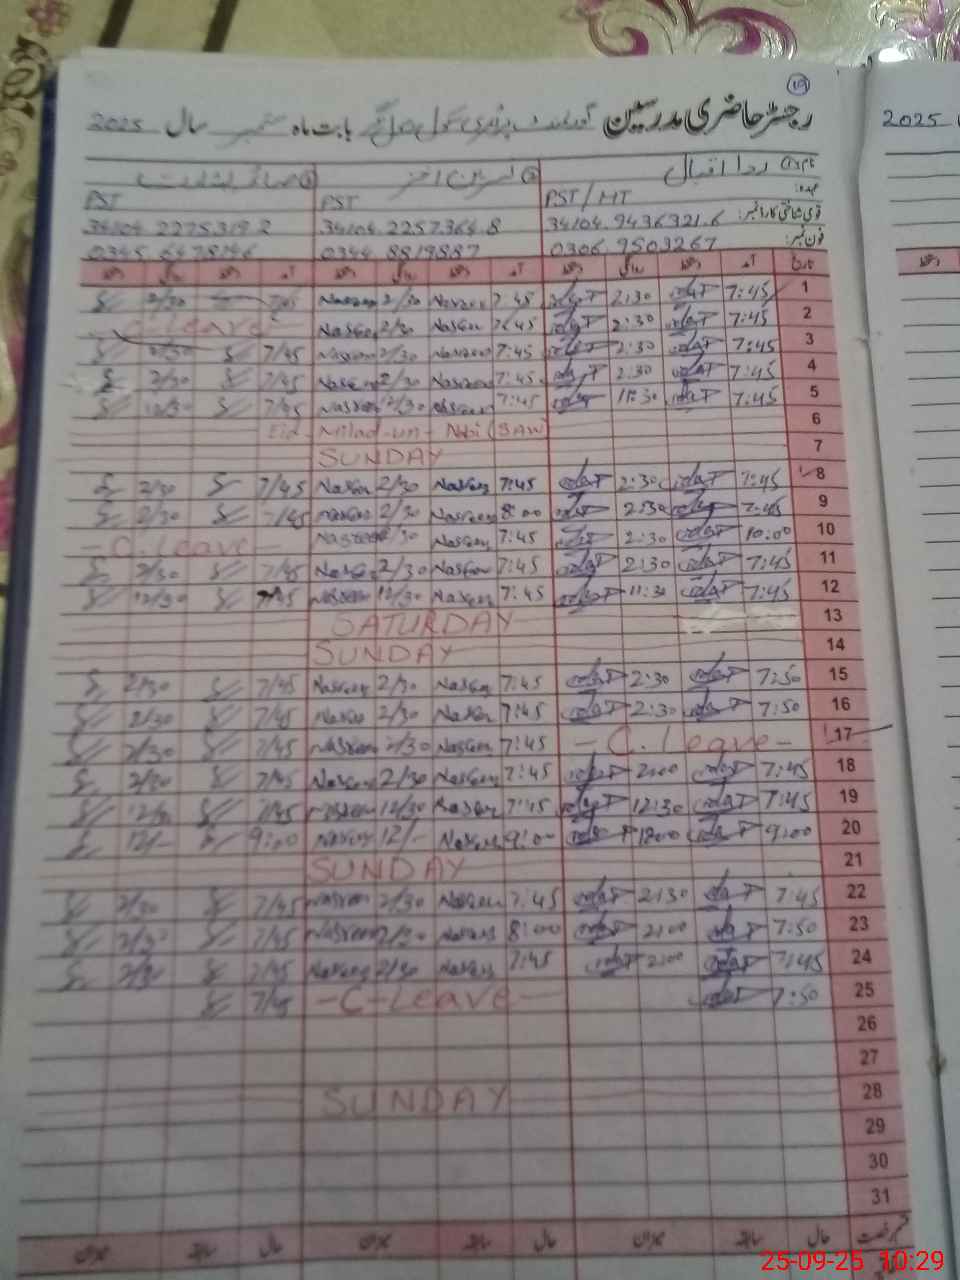 19
رجسٹر حاضری مدرسین گورنمنٹ پرائمری سکول بابت ماہ ستمبر سال 2025
2025
ردا اقبال نسرین اختر
عہدہ: PST/HT PST PST
قومی شناختی کارڈ نمبر: 34104.9436321.6 34104.2257364.8 34104.2275319.2
فون نمبر: 0306.9503267 0344.8819887 0345.6478746
تاریخ آمد دستخط روانگی دستخط آمد دستخط روانگی دستخط آمد دستخط روانگی دستخط
1 7:45 2:30 7:45 Nasreen 2/30 Nasreen 7/45 2/30
2 7:45 2:30 7:45 Nasreen 2/30 Nasreen C-leave
3 7:45 2:30 7:45 Nasreen 2/30 Nasreen 7/45 2/30
4 7:45 2:30 7:45 Nasreen 2/30 Nasreen 7/45 2/30
5 7:45 11:30 7:45 Nasreen 12/30 Nasreen 7/45 12/30
6 Eid-Milad-un-Nabi (SAW)
7 SUNDAY
8 7:45 2:30 7:45 Nasreen 2/30 Nasreen 7/45 2/30
9 7:45 2:30 8:00 Nasreen 2/30 Nasreen 7/45 2/30
10 10:00 2:30 7:45 Nasreen 2/30 Nasreen -C.leave-
11 7:45 2:30 7:45 Nasreen 2/30 Nasreen 7/45 2/30
12 7:45 11:30 7:45 Nasreen 12/30 Nasreen 7/45 12/30
13 SATURDAY
14 SUNDAY
15 7:50 2:30 7:45 Nasreen 2/30 Nasreen 7/45 2/30
16 7:50 2:30 7:45 Nasreen 2/30 Nasreen 7/45 2/30
17 -C.Leave- 7:45 Nasreen 2/30 Nasreen 7/45 2/30
18 7:45 2:00 7:45 Nasreen 2/30 Nasreen 7/45 2/30
19 7:45 12:30 7:45 Nasreen 12/30 Nasreen 7/45 12/30
20 9:00 12:00 9:00 Nasreen 12/- Nasreen 9:00 12/-
21 SUNDAY
22 7:45 2:30 7:45 Nasreen 2/30 Nasreen 7/45 2/30
23 7:50 2:00 8:00 Nasreen 2/30 Nasreen 7/45 2/30
24 7:45 2:00 7:45 Nasreen 2/30 Nasreen 7/45 2/30
25 7:50 -C-Leave- 7/45
26
27
28 SUNDAY
29
30
31
حال سابقہ میزان حال سابقہ میزان حال سابقہ میزان
25-09-25 10:29